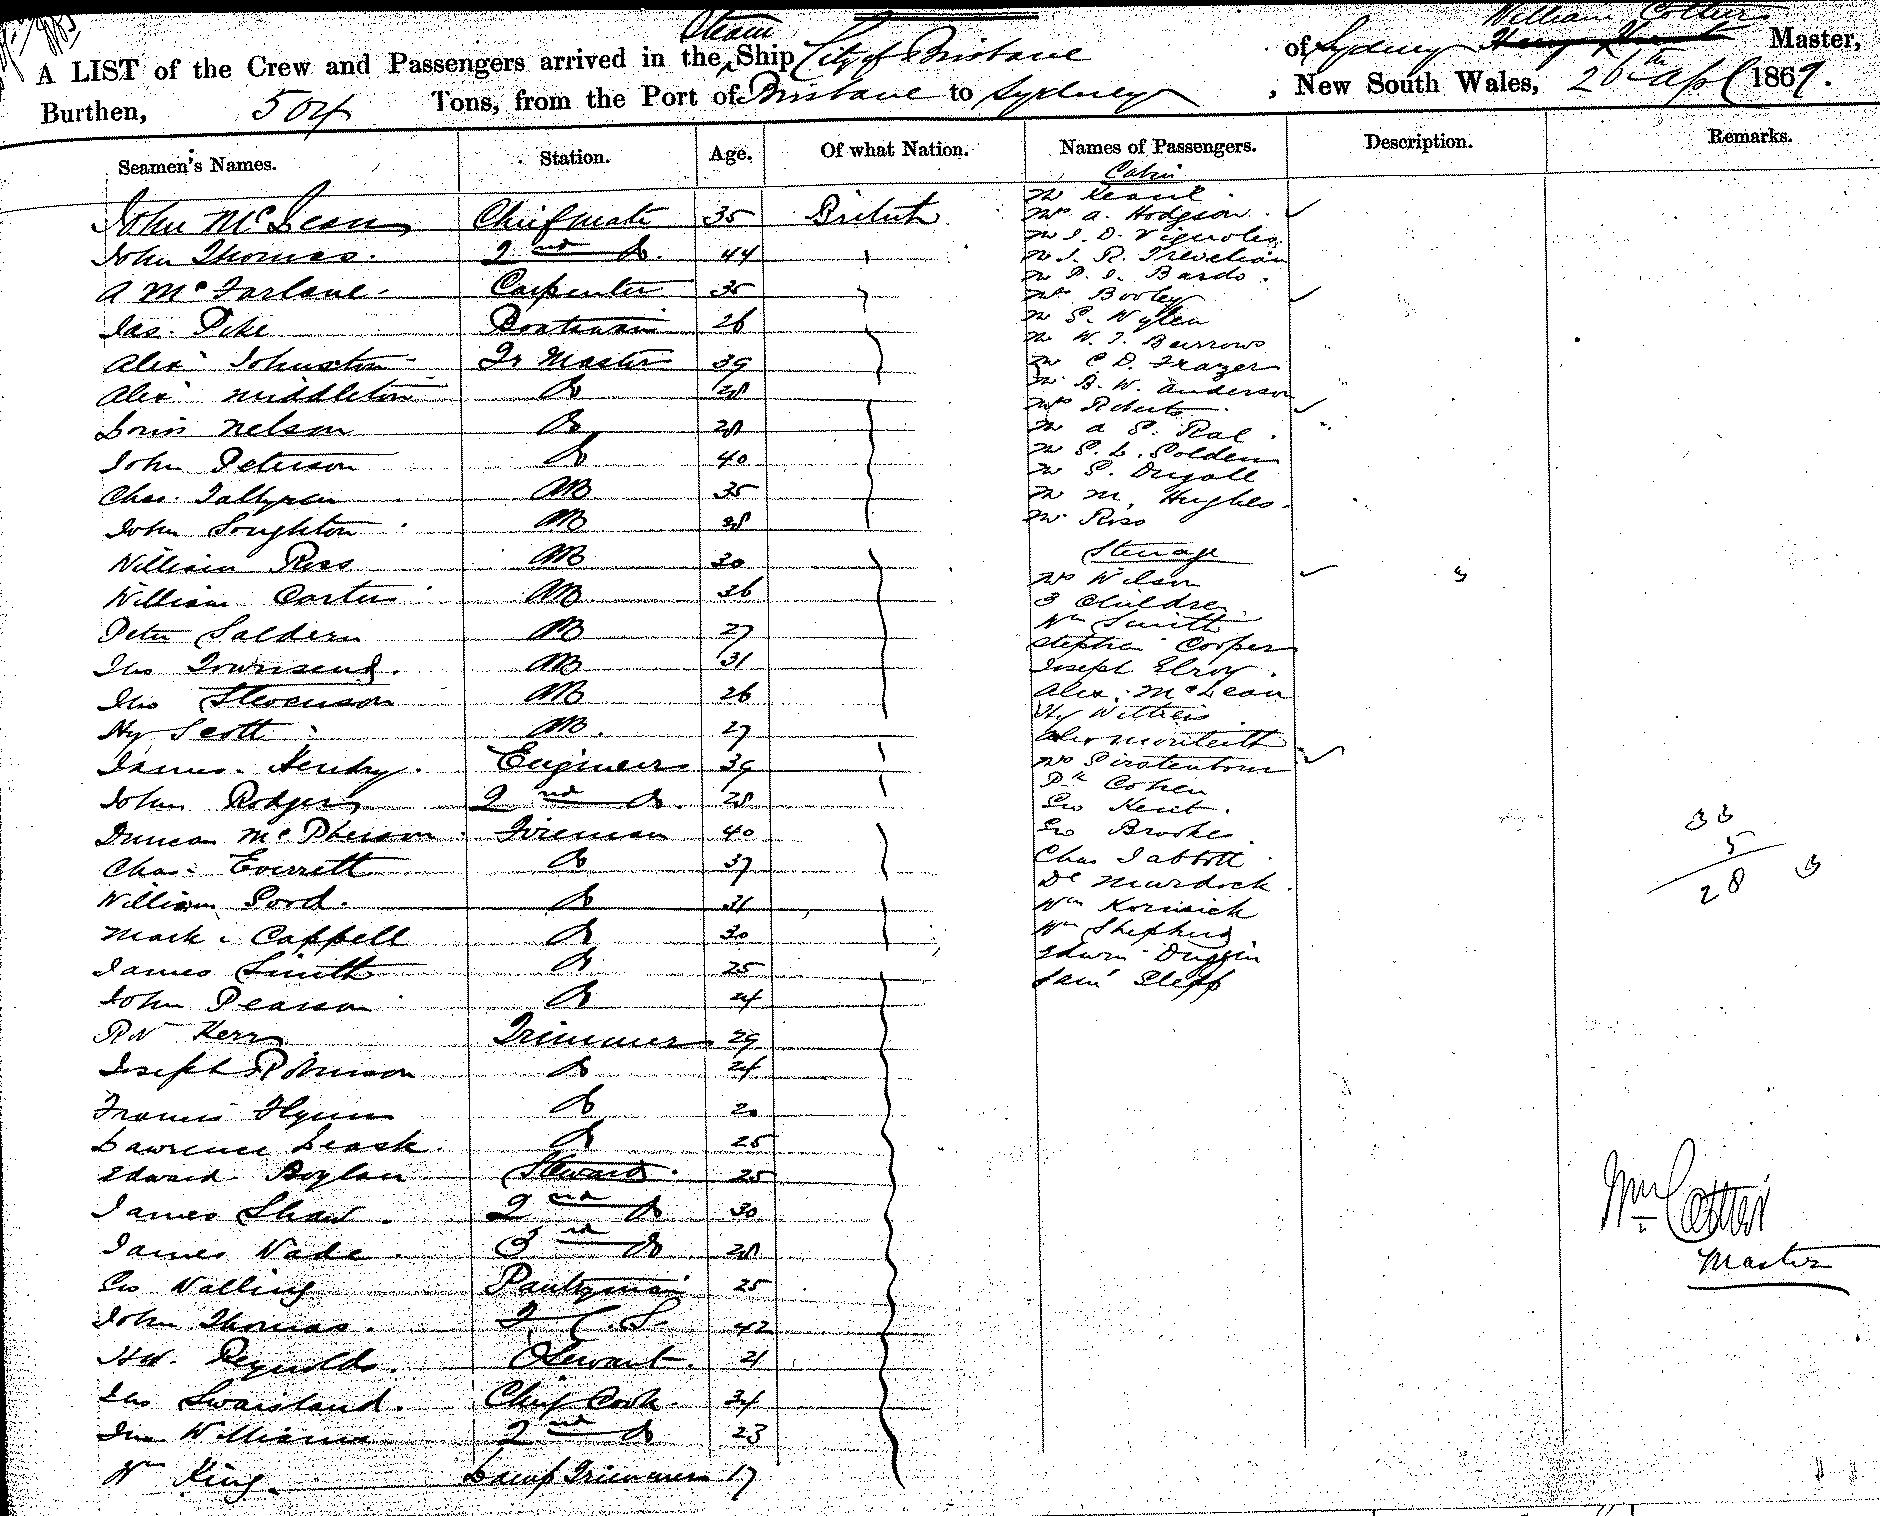 Steam
William Cottier
A LIST of the Crew and Passengers arrived in the Ship City of Brisbane of Sydney Master,
Burthen, 504 Tons, from the Port of Brisbane to Sydney, New South Wales, 26th Apl 1869.
Seamen's Names. Station. Age. Of what Nation. Names of Passengers. Description. Remarks.
John McLean Chief mate 35 British
John Thomas. 2nd Do. 44
A McFarlane. Carpenter 35
Jas. Pike Boatswain 26
Alexr Johnston Qr Master 39
Alexr Middleton Do 28
Louis Nelson Do 28
John Peterson Do 40
Chas. AB 35
John Soughton AB 28
William Ross AB 30
William Carter AB 36
Peter Saldern AB 27
Thos Townsend. AB 31
Thos Stevenson AB 26
Hy Scott AB. 27
James Hendry. Engineer 39
John Rodgers 2nd Do. 28
Duncan McPherson Fireman 40
Chas. Everett Do 37
William Do 31
Mark Cappell Do 30
James Smith Do 25
John Pearson Do 24
Kerr Trimmer 29
Joseph Robinson Do 24
Francis Flynn Do 20
Lawrence Leask. Do 25
Edward Boylan Steward. 25
James Shaw. 2nd Do 30
James Wade. 3rd Do 28
Geo Walling Pantryman 25
John Thomas. 42
Hy. Reynolds. Stewart. 21
Thos Swaisland. Chief Cook. 34
Williams 2nd Do 23
Wm King. Lamp Trimmer 17
Cabin
Mr
Mrs A. Hodgson
Mr J. D. Vignoles
Mr J. R. Trevelian
Mr P. J. Bardo.
Mrs Booley
Mr S. Wylen
Mr W. J. Burrows
Mr C. D. Frazer
Mr B. W. Anderson
Mrs Roberts
Mr A S. Rae
Mr S. L. Solden
Mr S.
Mr M. Hughes.
Mr Ross
Steerage
Mrs Wilson 3
3 Children
Wm Smith
Stephen Cooper
Joseph Elroy.
Alex. McLean
Hy Withers
Alex Monteith
Mrs
Cohen
Geo Kent.
Geo Brooke
Chas Tabbott
Dl Murdock.
Wm Kornsick
Wm Shepherd
Edwin Duggin
Saml Slepp
33
5
28 3
Wm Cottier
Master